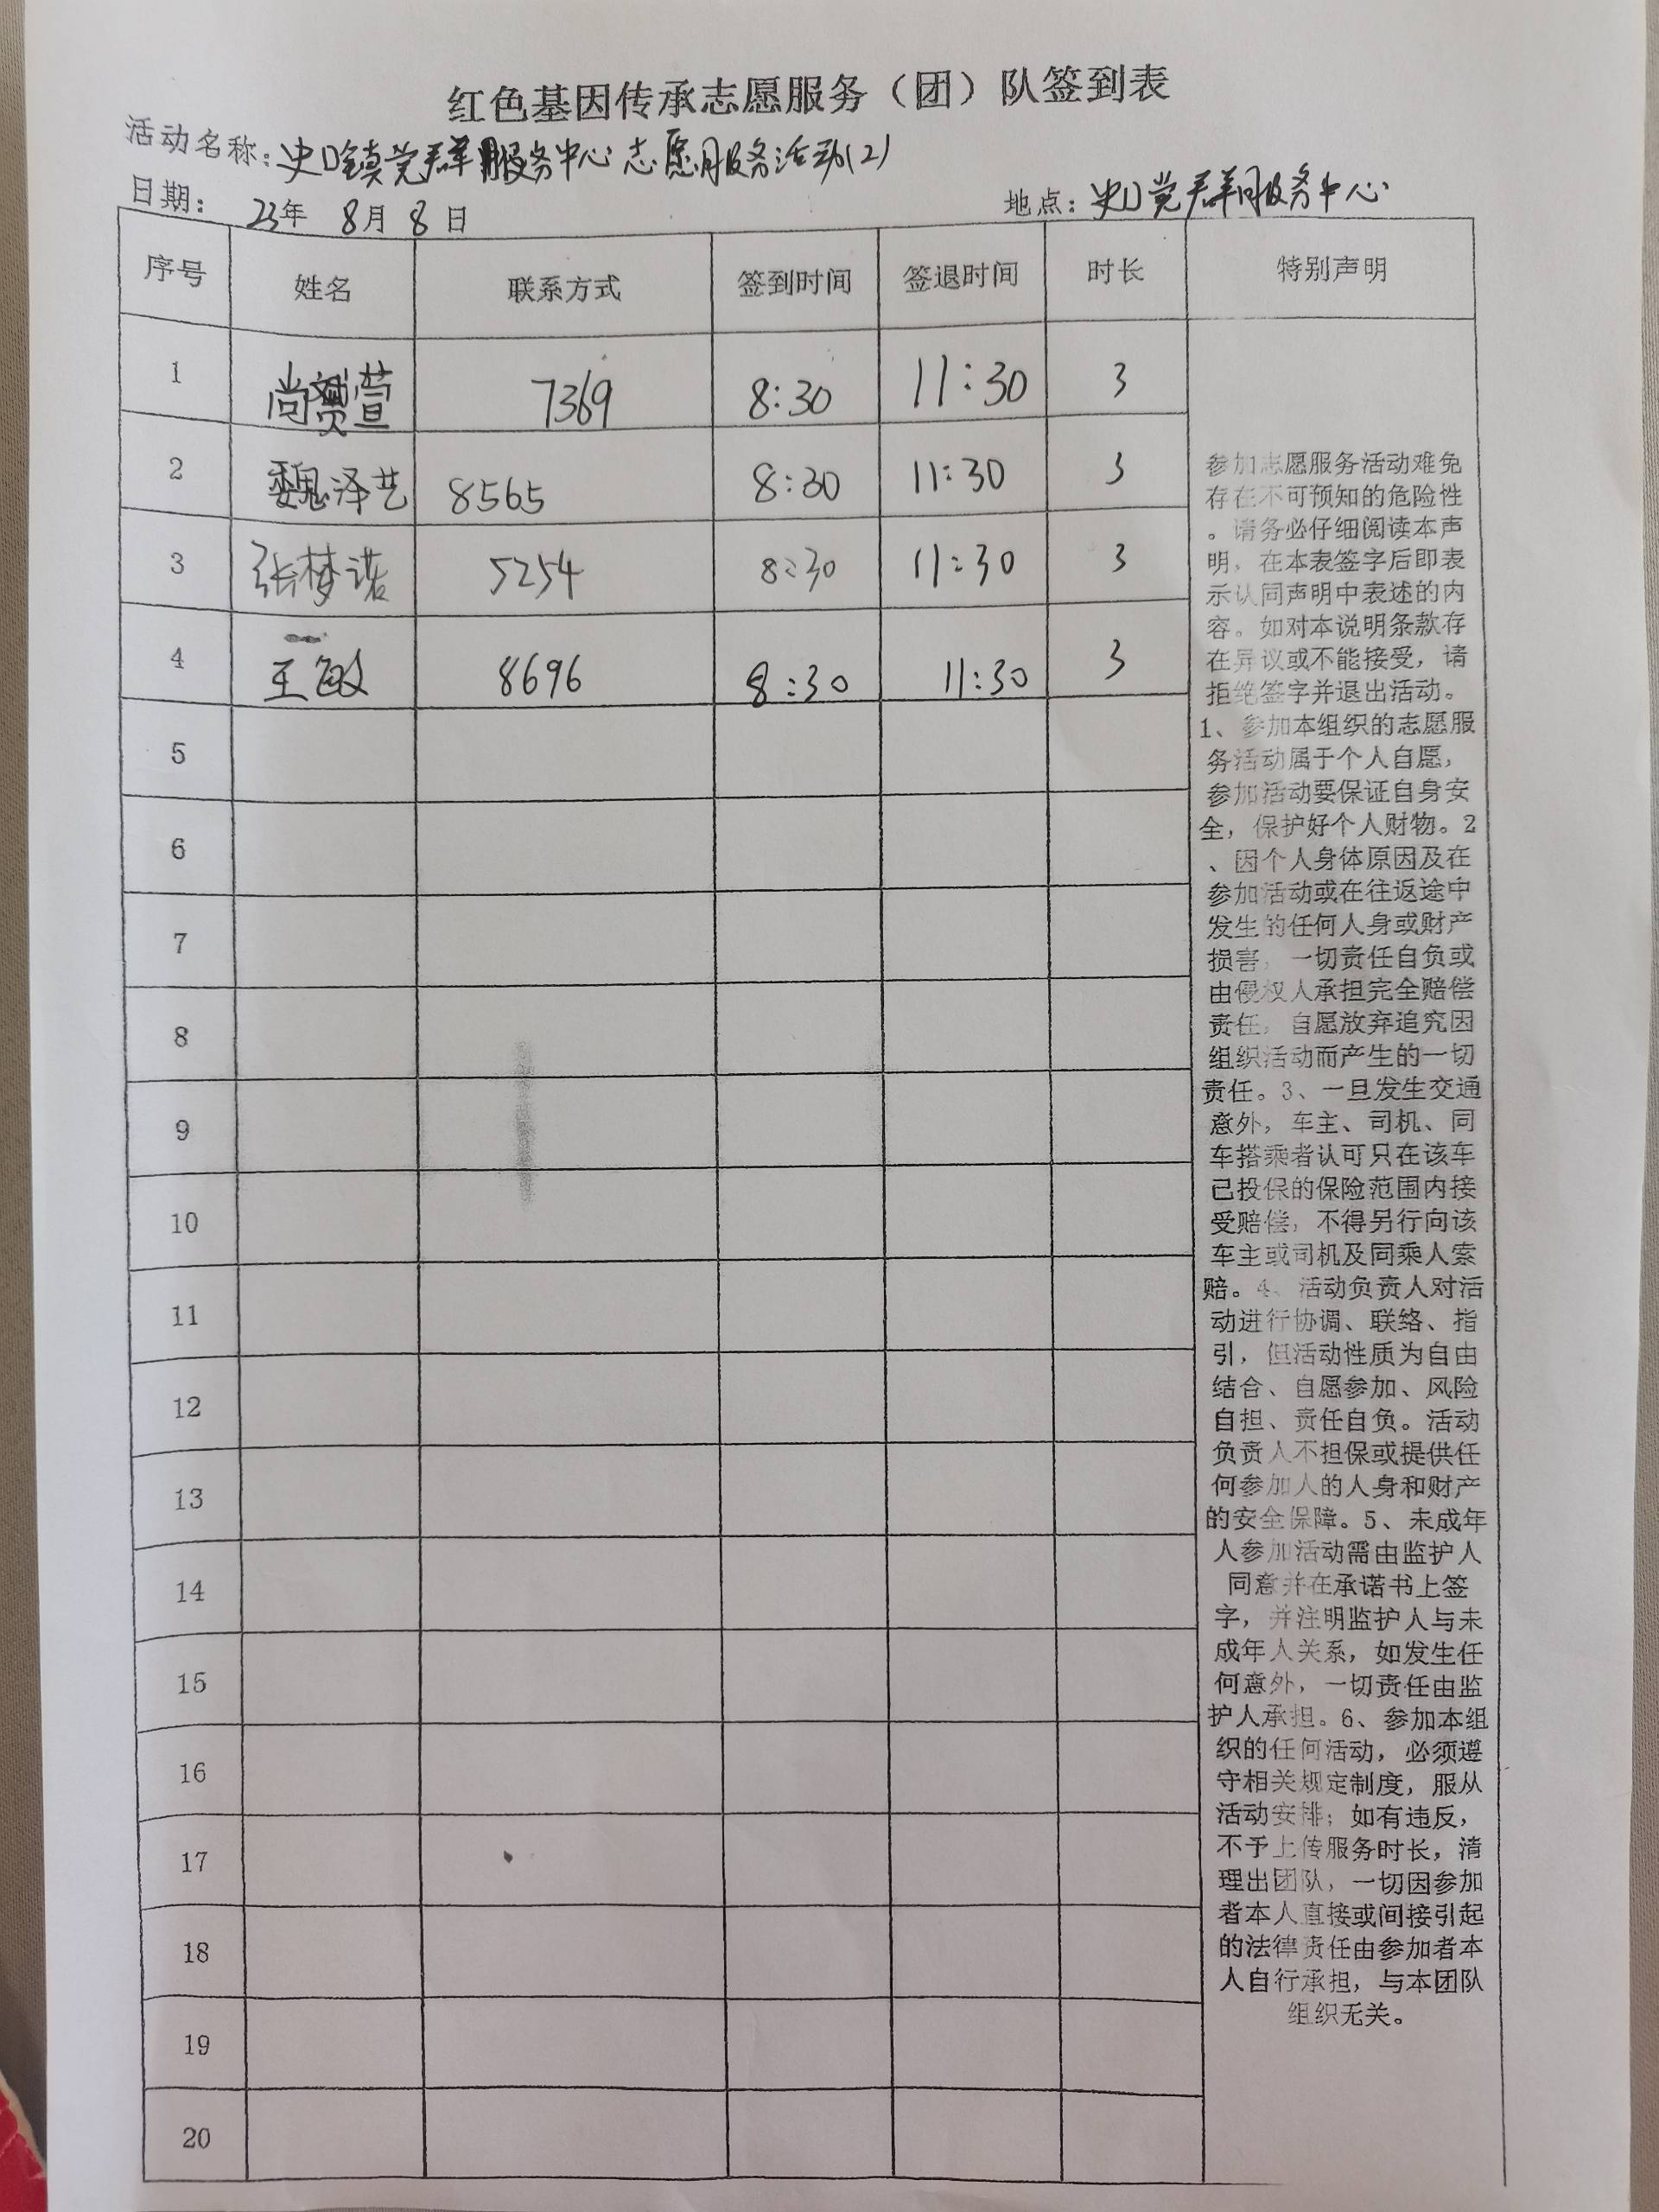 红色基因传承志愿服务（团）队签到表
活动名称：史口镇党群服务中心志愿服务活动(2)
日期： 23年 8月 8日 地点：史口党群服务中心
序号 姓名 联系方式 签到时间 签退时间 时长 特别声明
1 尚赟萱 7369 8:30 11:30 3
2 魏泽艺 8565 8:30 11:30 3
3 张梦诺 5254 8:30 11:30 3
4 王敏 8696 8:30 11:30 3
5
6
7
8
9
10
11
12
13
14
15
16
17
18
19
20
参加志愿服务活动难免
存在不可预知的危险性
。请务必仔细阅读本声
明，在本表签字后即表
示认同声明中表述的内
容。如对本说明条款存
在异议或不能接受，请
拒绝签字并退出活动。
1、参加本组织的志愿服
务活动属于个人自愿，
参加活动要保证自身安
全，保护好个人财物。2
、因个人身体原因及在
参加活动或在往返途中
发生的任何人身或财产
损害，一切责任自负或
由侵权人承担完全赔偿
责任，自愿放弃追究因
组织活动而产生的一切
责任。3、一旦发生交通
意外，车主、司机、同
车搭乘者认可只在该车
已投保的保险范围内接
受赔偿，不得另行向该
车主或司机及同乘人索
赔。4、活动负责人对活
动进行协调、联络、指
引，但活动性质为自由
结合、自愿参加、风险
自担、责任自负。活动
负责人不担保或提供任
何参加人的人身和财产
的安全保障。5、未成年
人参加活动需由监护人
同意并在承诺书上签
字，并注明监护人与未
成年人关系，如发生任
何意外，一切责任由监
护人承担。6、参加本组
织的任何活动，必须遵
守相关规定制度，服从
活动安排；如有违反，
不予上传服务时长，清
理出团队，一切因参加
者本人直接或间接引起
的法律责任由参加者本
人自行承担，与本团队
组织无关。